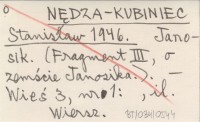 o NĘDZA-KUBINIEC
Stanisław 1946. Jano-
sik. (Fragment III, o
zemście Janosika.). —
Wieś 3, nr 1: , il.
Wiersz.